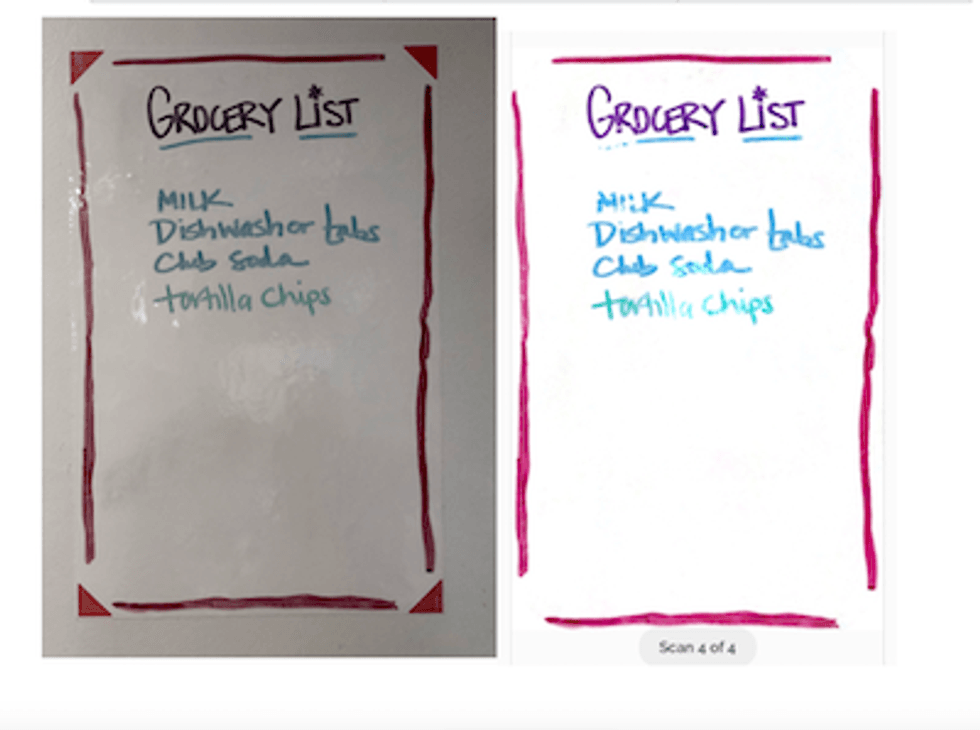 GROCERY LIST
MILK
Dishwasher tabs
Club Soda
tortilla chips
GROCERY LIST
MILK
Dishwasher tabs
Club Soda
tortilla chips
Scan 4 of 4